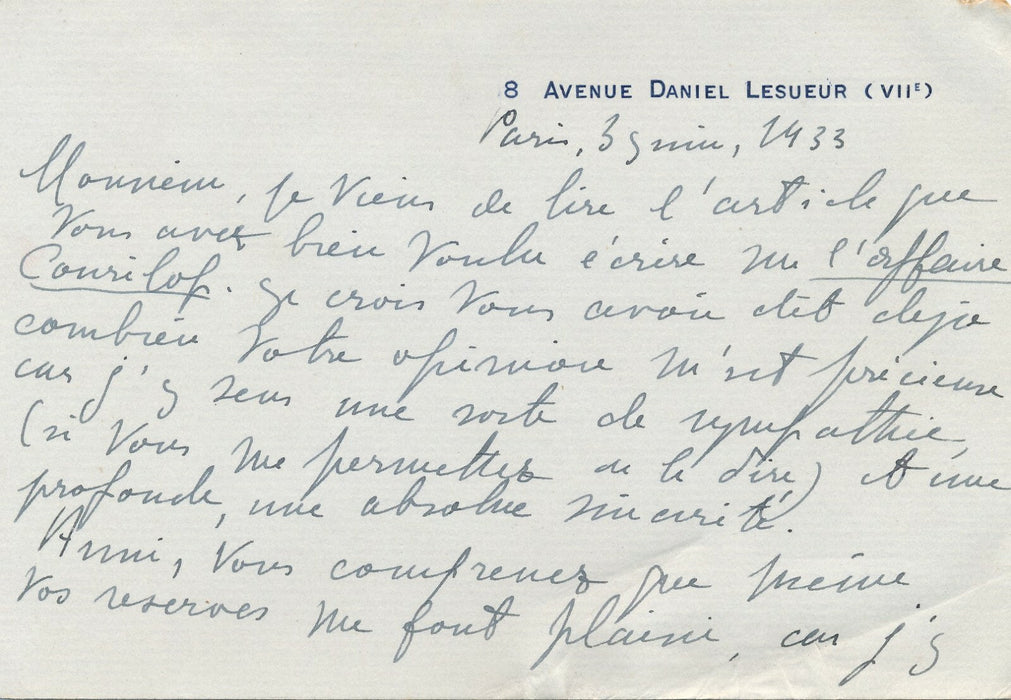 8 AVENUE DANIEL LESUEUR (VIIE)
Paris, 3 juin, 1933
Monsieur, je viens de lire l'article que
Vous avez bien voulu écrire sur l'affaire
Courilof. Je crois Vous avoir dit déjà
combien Votre opinion m'est précieuse
car j'y sens une sorte de sympathie
(si Vous me permettez de le dire) et une
profonde, une absolue sincérité.
Aussi, Vous comprenez que même
Vos réserves me font plaisir, car j'y